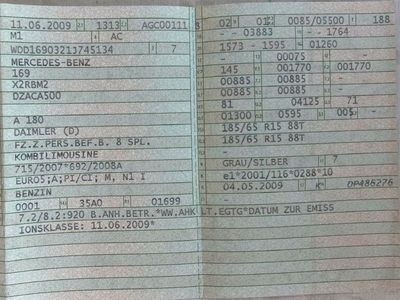 11.06.2009 1313 AGC00111 8
M1 AC
WDD16903213745134 7
MERCEDES-BENZ
169
X2RBM2
DZACA500
A 180
DAIMLER (D)
FZ.Z.PERS.BEF.B. 8 SPL.
KOMBILIMOUSINE
715/2007*692/2008A
EURO5;A;PI/CI; M, N1 I
BENZIN
0001 35A0 01699
7.2/8.2:920 B.ANH.BETR.*WW.AHK LT.EGTG*DATUM ZUR EMISS
IONSKLASSE: 11.06.2009*
02 01 0085/05500 188
- - 03883 - -1764
1573 - 1595 01260
- 00075 -
145 001770 001770
00885 00885 -
00885 00885 -
81 04125 71
01300 0595 005 -
185/65 R15 88T
185/65 R15 88T
-
GRAU/SILBER 7
e1*2001/116*0288*10
04.05.2009 K DP486276